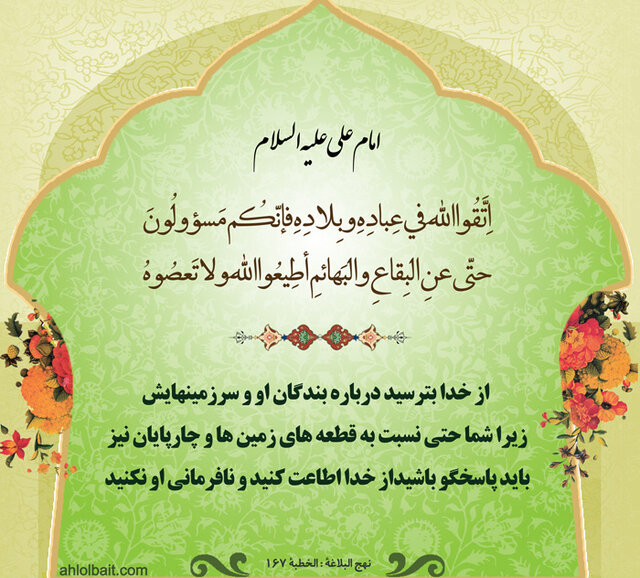 امام علی علیه السلام
اِتَّقُوا اللهَ في عِبادِهِ و بِلادِهِ فَإنَّكُم مَسؤولُونَ
حتّى عنِ البِقاعِ والبَهائمِ أطِيعُوا اللهَ ولا تَعصُوهُ
از خدا بترسید درباره بندگان او و سرزمینهایش
زیرا شما حتی نسبت به قطعه های زمین ها و چارپایان نیز
باید پاسخگو باشیداز خدا اطاعت کنید و نافرمانی او نکنید
نهج البلاغة : الخطبة ۱۶۷
ahlolbait.com